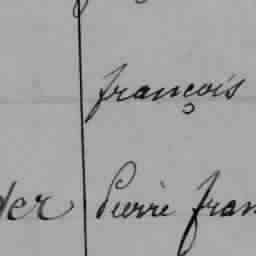 françois
der Pierre fran